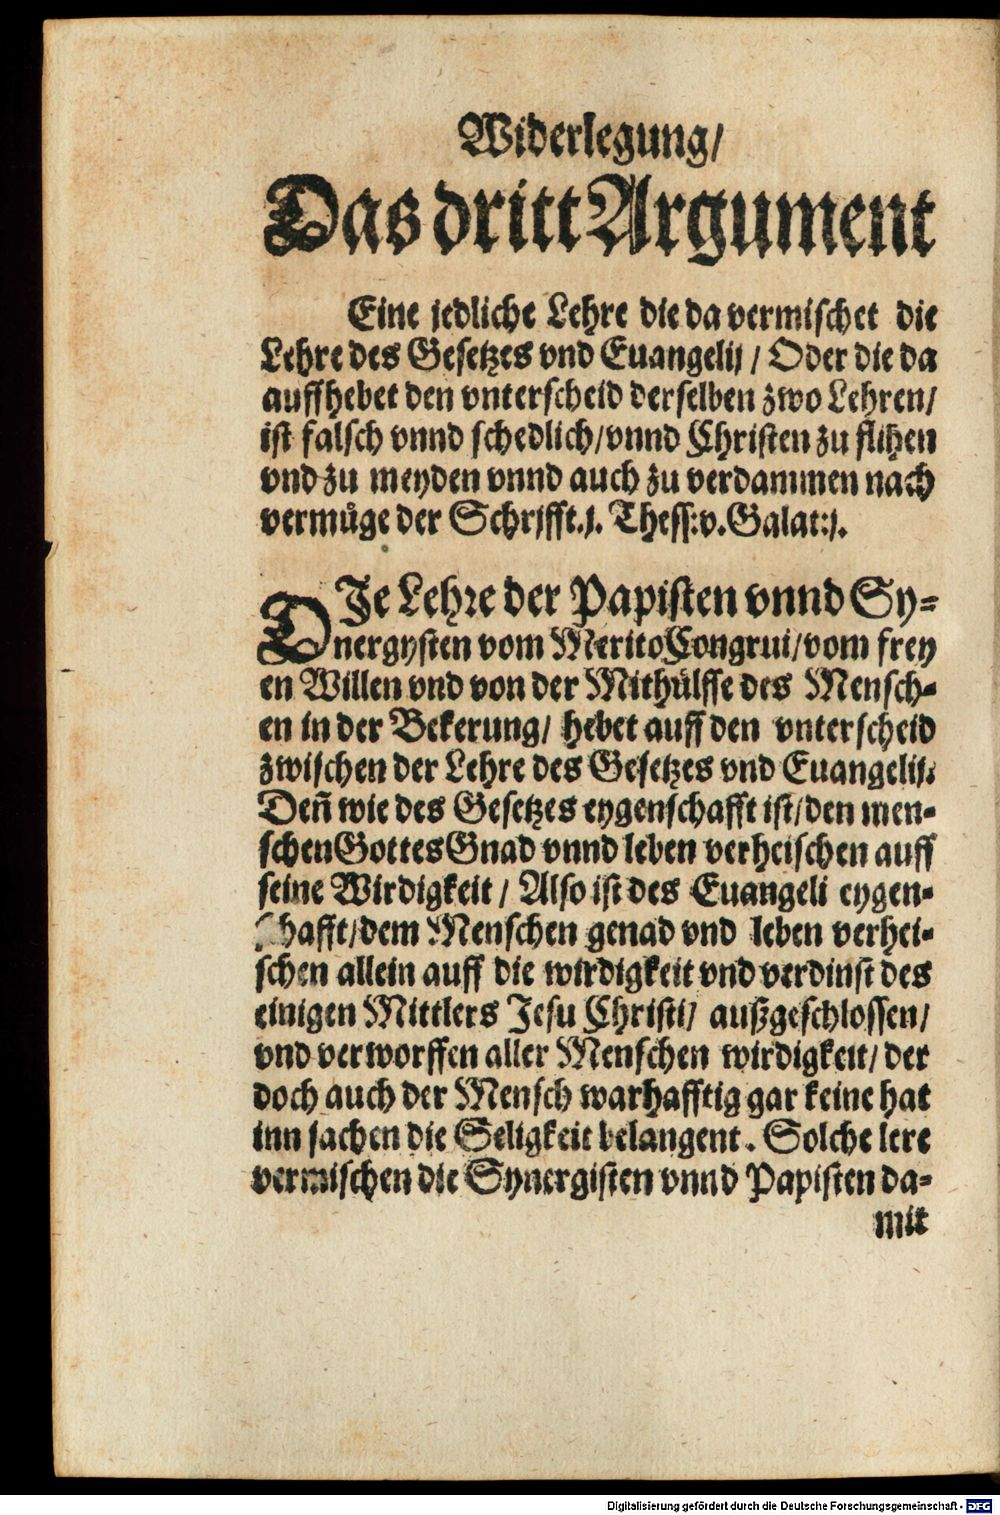 Widerlegung/
Das dritt Argument
Eine jedliche Lehre die da vermischet die
Lehre des Gesetzes vnd Euangelij / Oder die da
auffhebet den vnterscheid derselben zwo Lehren/
ist falsch vnnd schedlich/vnnd Christen zu flihen
vnd zu meyden vnnd auch zu verdammen nach
vermůge der Schrifft.j. Thess:v.Galat:j.
DIe Lehre der Papisten vnnd Sy-
nergysten vom Merito Congrui/vom frey
en Willen vnd von der Mithülffe des Mensch-
en in der Bekerung/ hebet auff den vnterscheid
zwischen der Lehre des Gesetzes vnd Euangelij:
Deñ wie des Gesetzes eygenschafft ist/den men-
schen Gottes Gnad vnnd leben verheischen auff
seine Wirdigkeit / Also ist des Euangeli eygen-
schafft/dem Menschen genad vnd leben verhei-
schen allein auff die wirdigkeit vnd verdinst des
einigen Mittlers Jesu Christi/ außgeschlossen/
vnd verworffen aller Menschen wirdigkeit/ der
doch auch der Mensch warhafftig gar keine hat
inn sachen die Seligkeit belangent. Solche lere
vermischen die Synergisten vnnd Papisten da-
mit
Digitalisierung gefördert durch die Deutsche Forschungsgemeinschaft - DFG